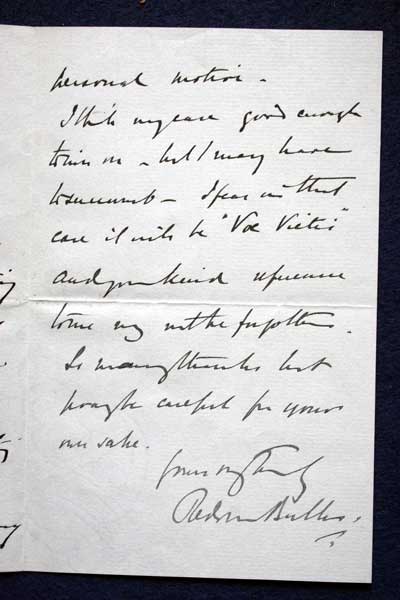 personal motive -
I think my case good enough
to win on - but I may have
to succumb - I fear in that
case it will be "Vae Victis"
and your kind reference
to me may not be forgotten.
So many thanks but
pray be careful for your
own sake.
Yours very truly
Redvers Buller